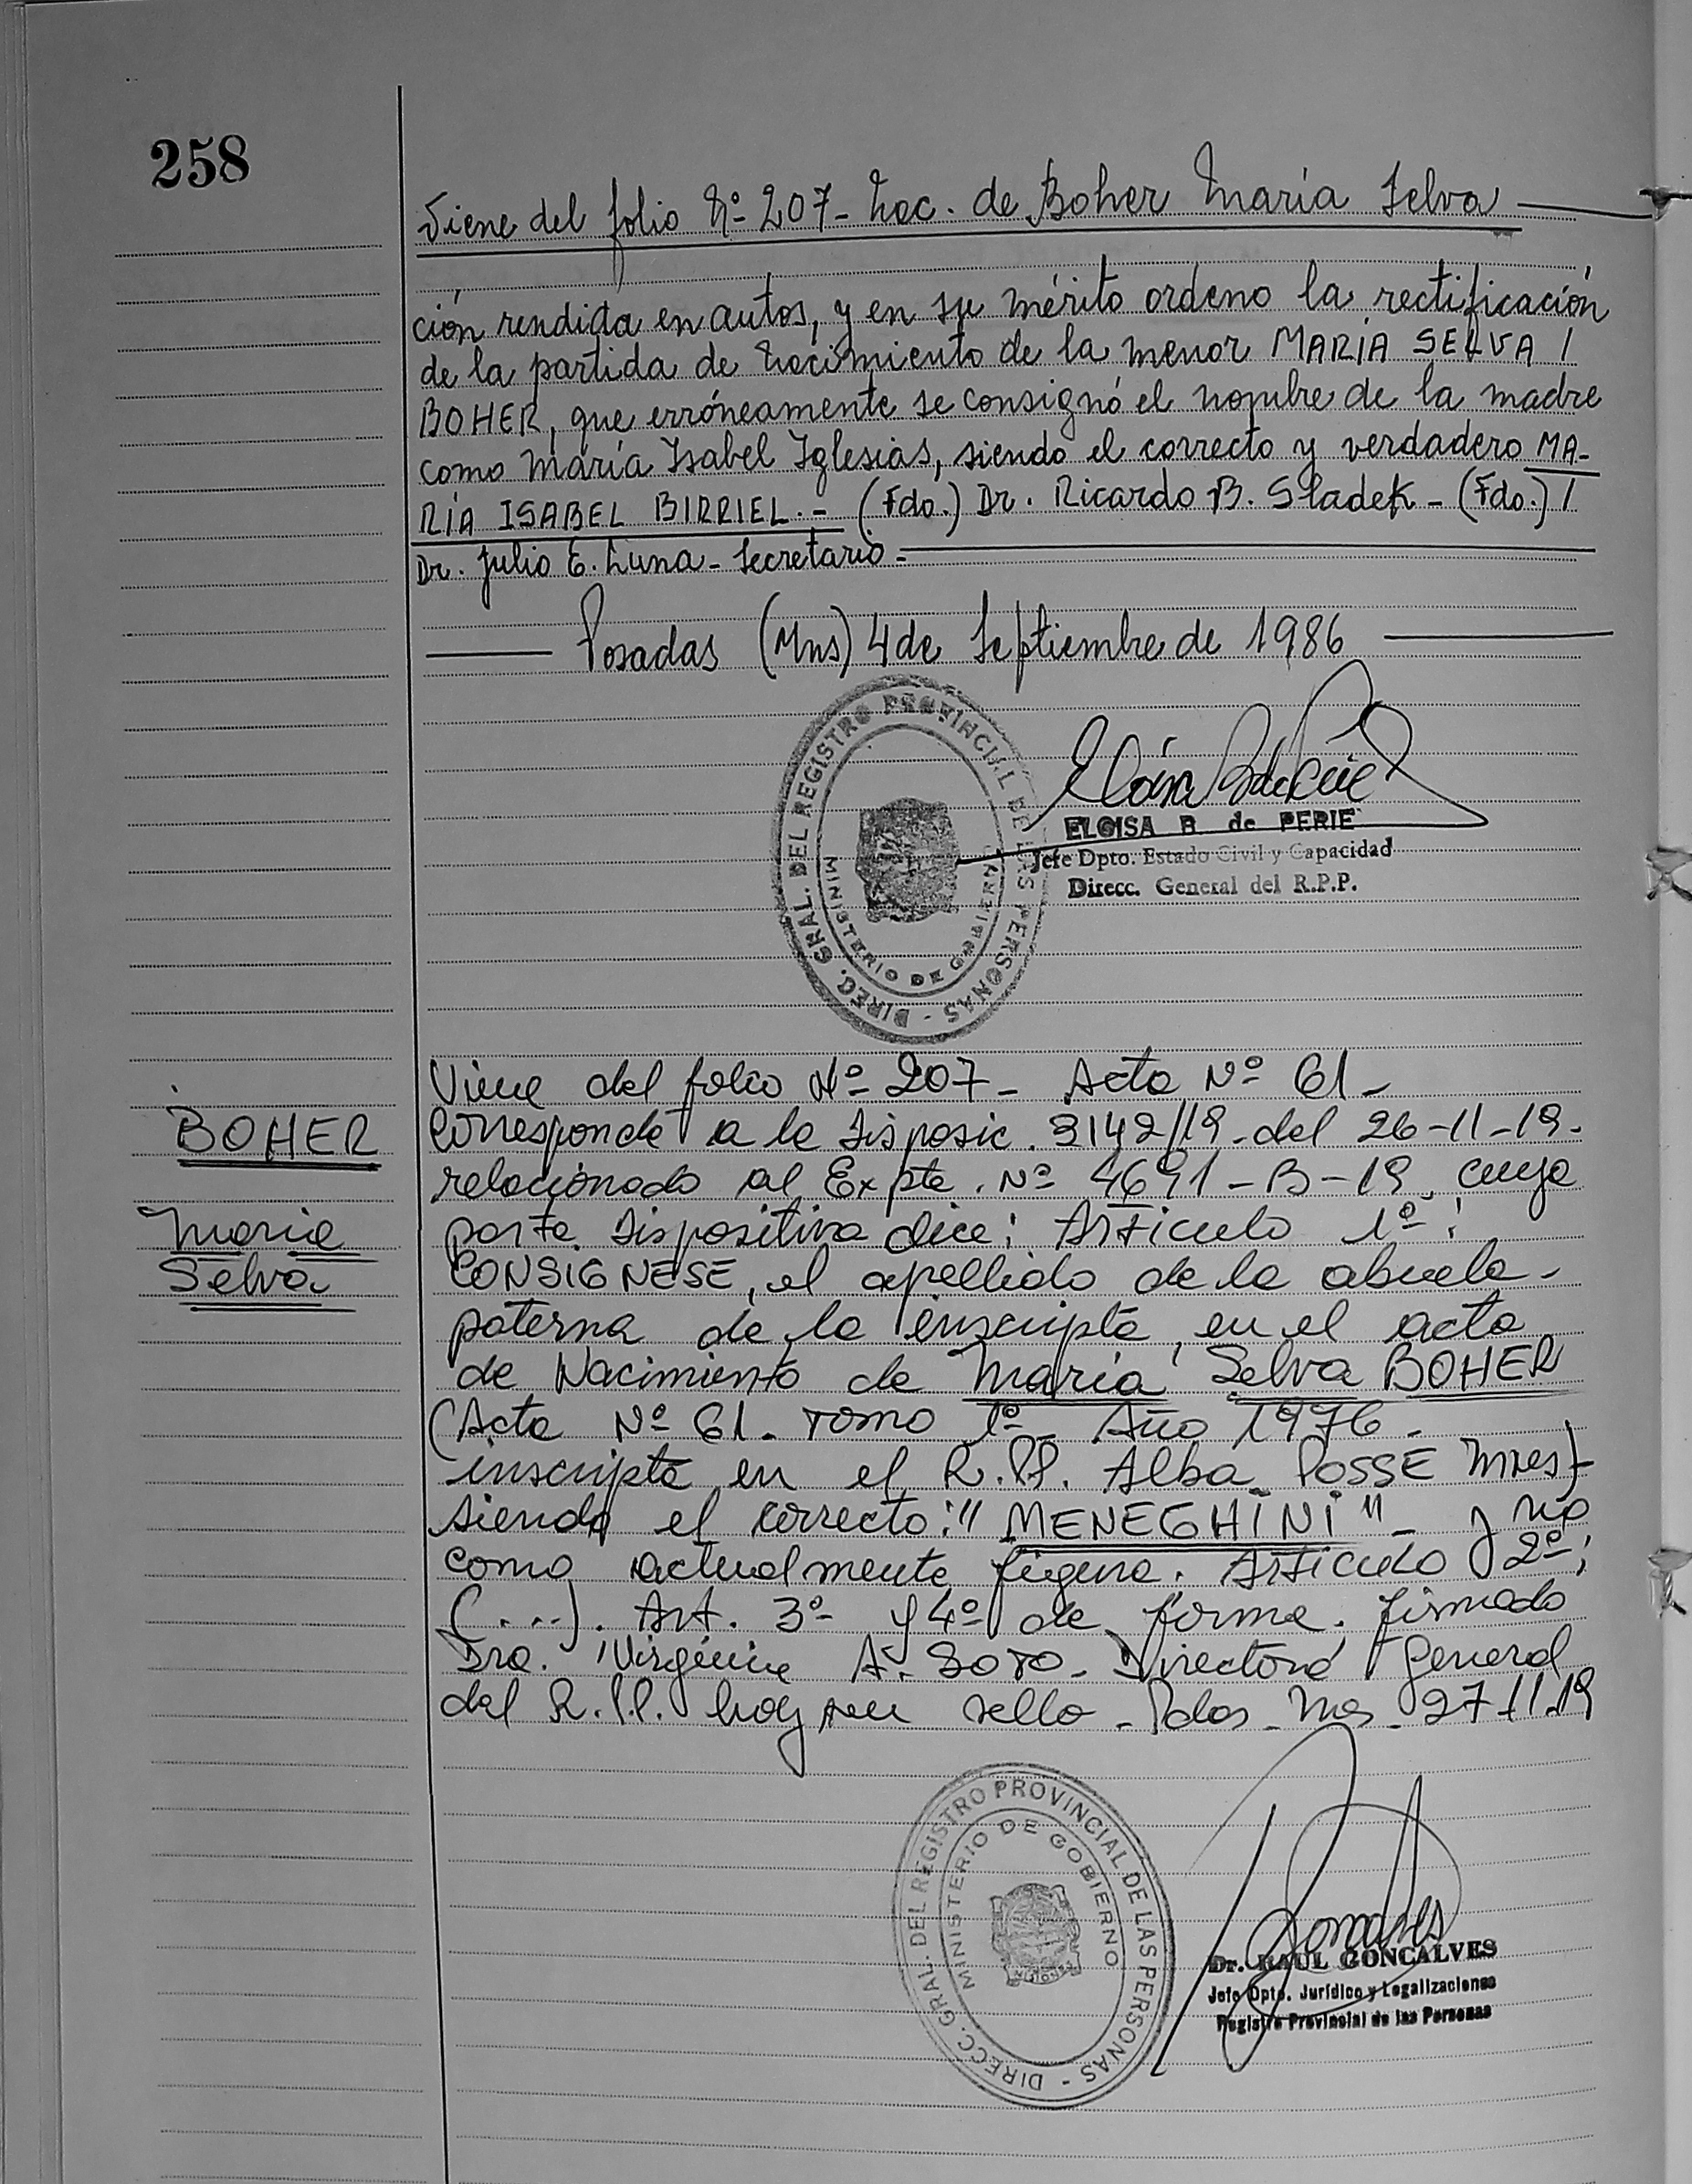 258
Viene del folio Nº 207- Nac. de Boher María Selva
ción rendida en autos, y en su mérito ordeno la rectificación
de la partida de Nacimiento de la menor MARÍA SELVA /
BOHER, que erróneamente se consignó el nombre de la madre
como María Isabel Iglesias, siendo el correcto y verdadero MA-
RÍA ISABEL BIRRIEL.- (Fdo.) Dr. Ricardo B. Sladek - (Fdo.) /
Dr. Julio E. Luna - Secretario -
Posadas (Mns) 4 de Septiembre de 1986
DIREC. GRAL. DEL REGISTRO PROVINCIAL DE LAS PERSONAS -
MINISTERIO DE GOBIERNO
ELOISA B. de PERIE
Jefe Dpto. Estado Civil y Capacidad
Direcc. General del R.P.P.
BOHER
Maria
Selva
Viene del folio Nº 207- Acta Nº 61-
Corresponde a la Disposic. 3142/19-del 26-11-19-
relacionado al Expte. Nº 4691-B-19, cuya
parte Dispositiva dice: Articulo 1º:
CONSIGNESE, el apellido de la abuela-
paterna de la inscripta, en el acta
de Nacimiento de María Selva BOHER
(Acta Nº 61- Tomo 1º- Año 1976-
inscripta en el R.P.P. Alba POSSE Mnes)-
siendo el correcto: "MENEGHINI"- y no
como actualmente figura. Articulo 2º:
(....). Art. 3º y 4º de forma. firmado
Dra. Virginia A. SOTO- Directora General
del R.P.P. hay un sello - Pdas- Mns- 27-11-19
DIRECC. GRAL. DEL REGISTRO PROVINCIAL DE LAS PERSONAS -
MINISTERIO DE GOBIERNO
MISIONES
Dr. RAUL GONCALVES
Jefe Dpto. Jurídico y Legalizaciones
Registro Provincial de las Personas